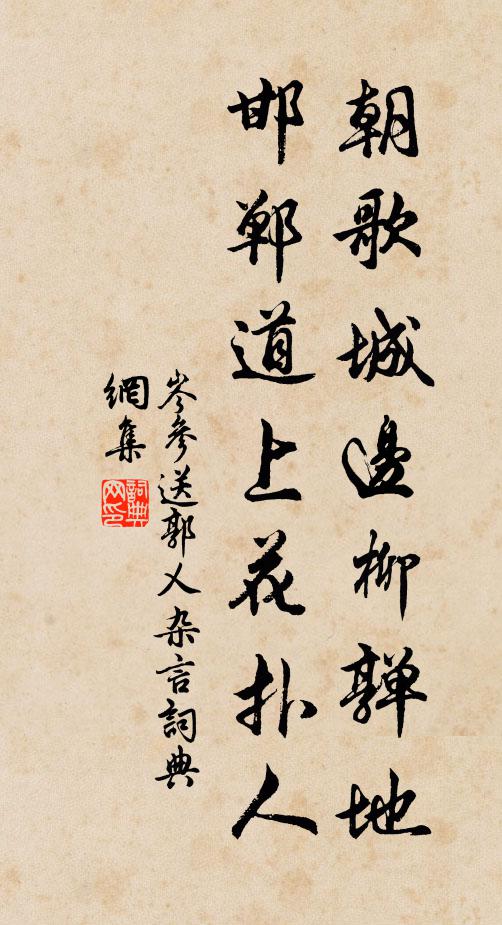 朝歌城邊柳嚲地
邯鄲道上花扑人
岑參送郭乂杂言詞典
網集
詞典
网印